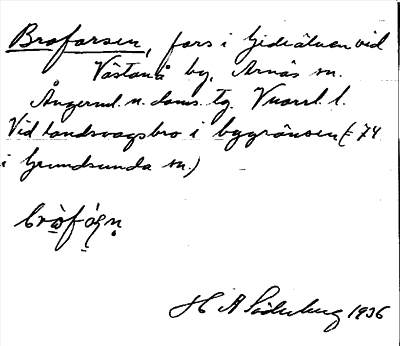 Broforsen, fors i Gideälven vid
Västanå by, Arnäs sn.
Ångerml. n. doms. tg. V.norrl. l.
Vid landsvägsbro i bygränsen (= 74
i Grundsunda sn.)
H A Söderberg 1936